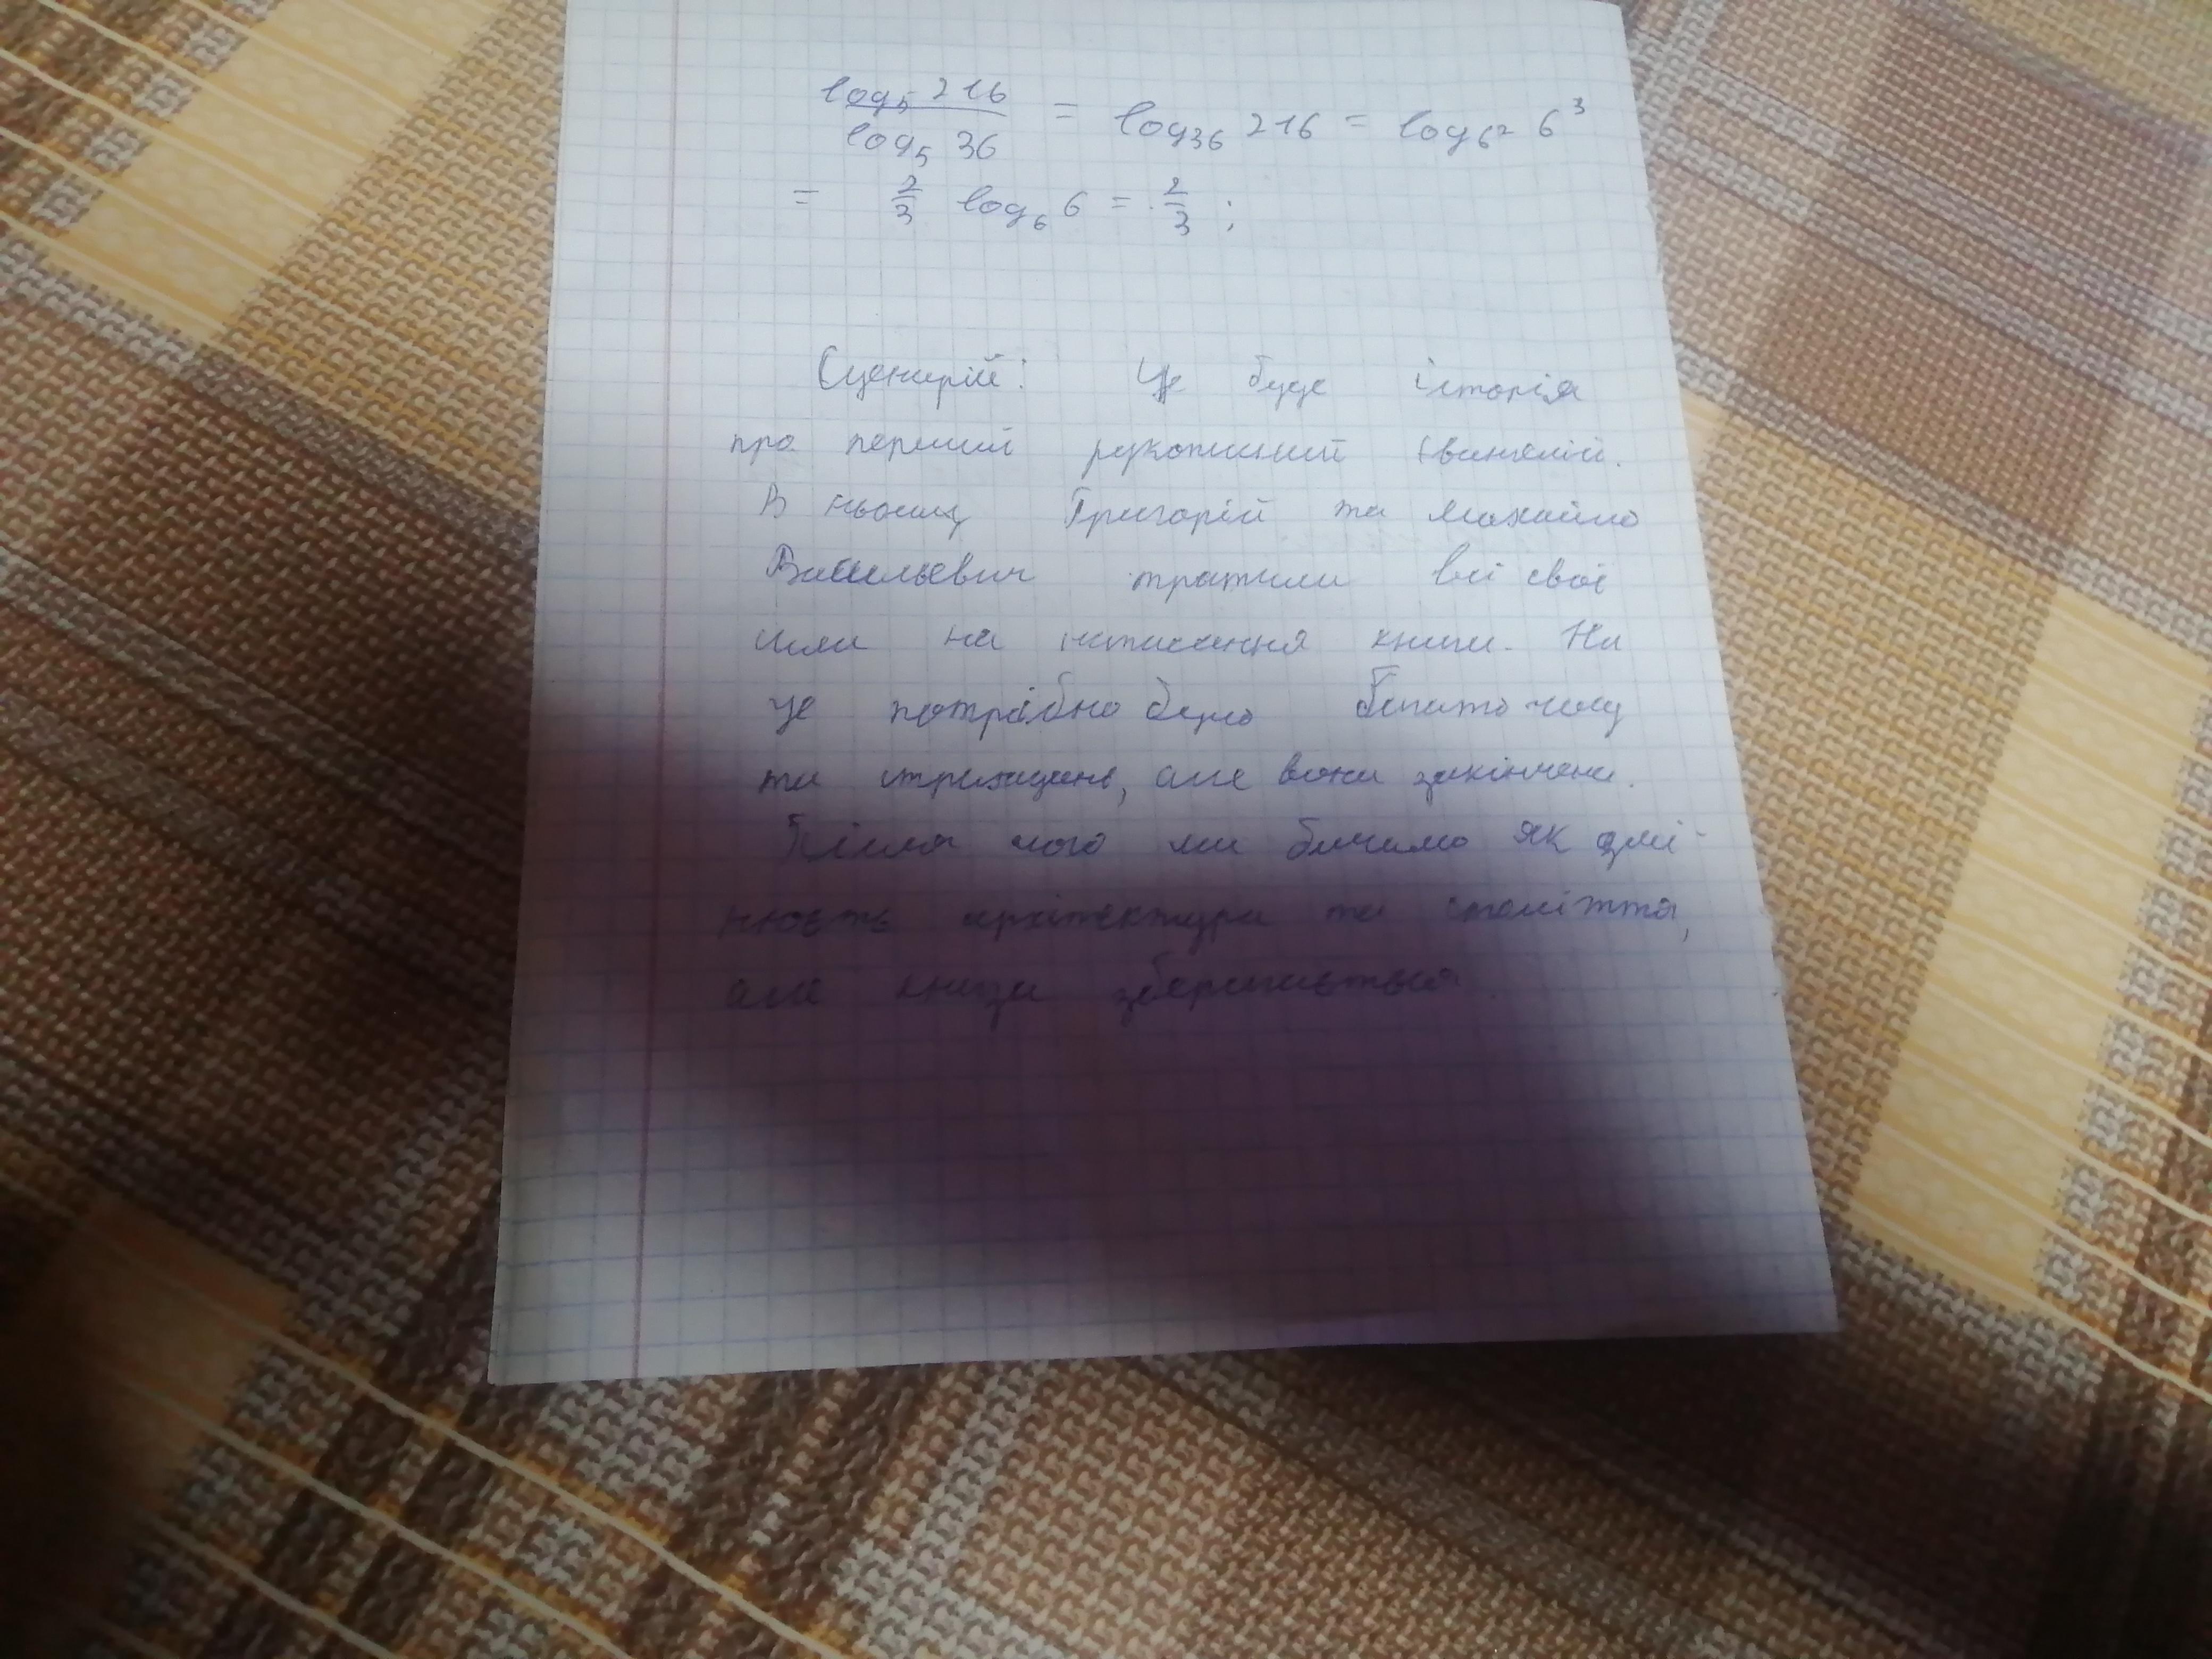 log₅ 216 / log₅ 36 = log₃₆ 216 = log₆² 6³
= 2/3 log₆ 6 = 2/3 ;
Сценарій: Це буде історія
про перший рукописний Євангелій.
В ньому Григорій та Михайло
Васильевич тратили всі свої
сили на написання книги. На
це потрібно було багато часу
та страждань, але вони закінчили.
Після чого ми бачимо як змі-
нюєть архітектура та століття,
але книга зберігається.